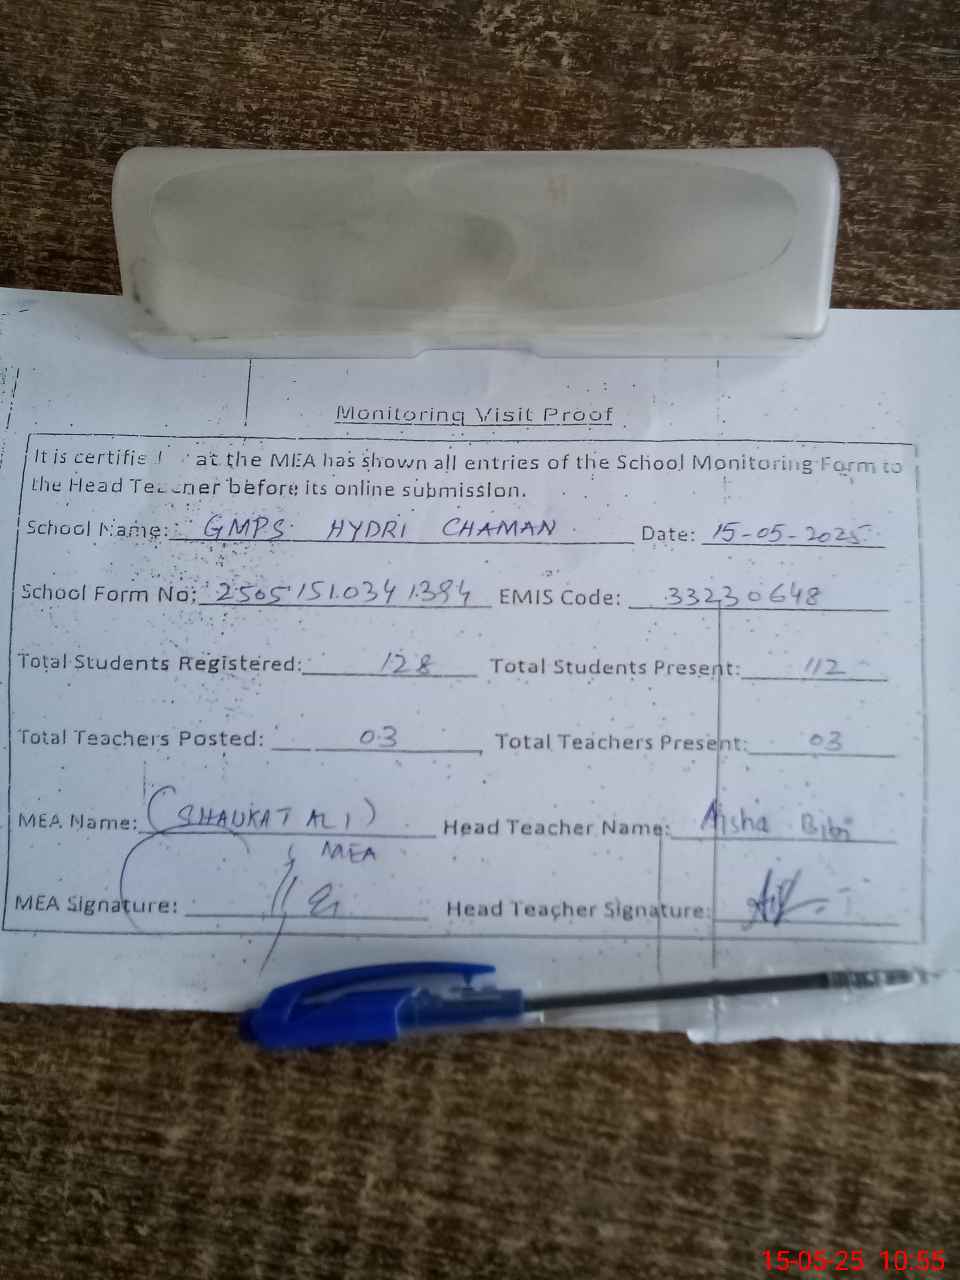 Monitoring Visit Proof
It is certified that the MEA has shown all entries of the School Monitoring Form to
the Head Teacher before its online submission.
School Name: GMPS HYDRI CHAMAN Date: 15-05-2025
School Form No: 25051510341394 EMIS Code: 33230648
Total Students Registered: 128 Total Students Present: 112
Total Teachers Posted: 03 Total Teachers Present: 03
MEA Name: (SHAUKAT ALI) Head Teacher Name: Aisha Bibi
MEA
MEA Signature: Head Teacher Signature:
15-05-25 10:55